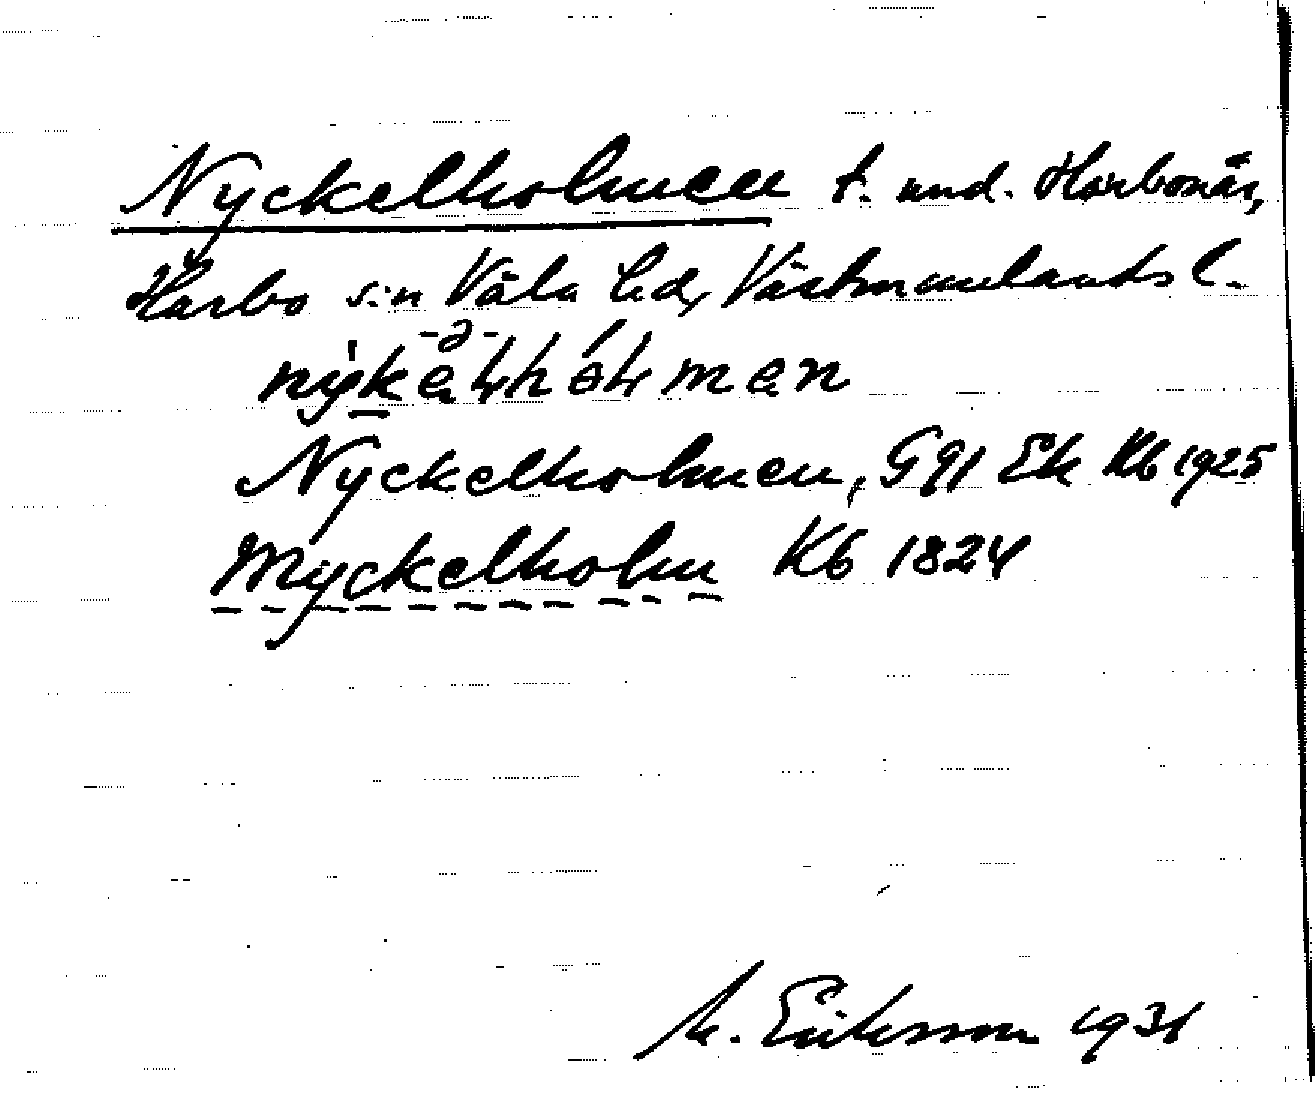 Nyckelholmen t. und. Harbonäs,
Harbo s:n Våla hd, Västmanlands l.
Nyckelholmen, G91 Ek Kb 1925
Myckelholm Kb 1824
M. Eriksson 1931